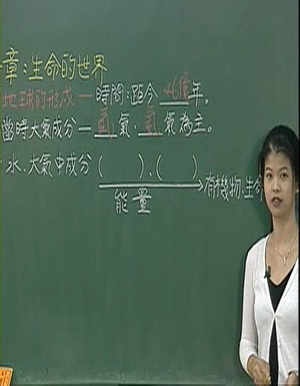 章:生命的世界
地球的形成—時間:距今 46億 年。
當時大氣成分— 氮 氣、氫 氣為主。
水、大氣中成分 ( )、( ) 有機物、生命
能量